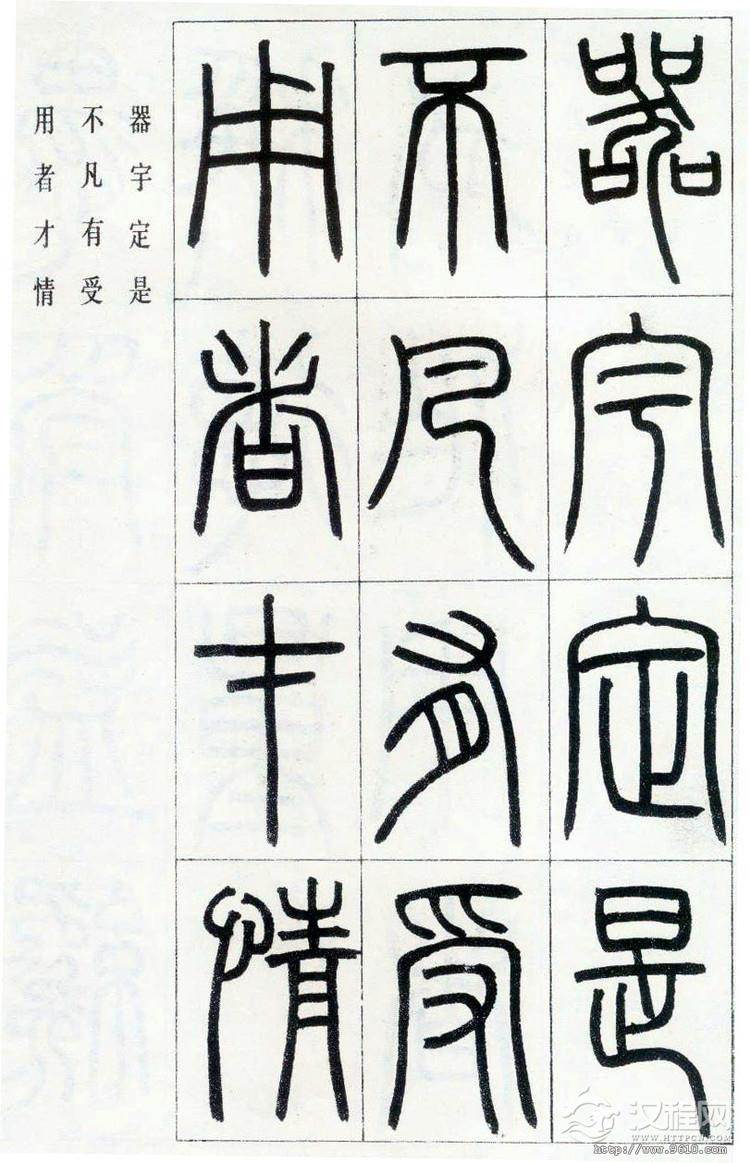 器宇定是
不凡有受
用者才情
器宇定是
不凡有受
用者才情
汉程网
WWW.HTTPCN.COM
http://www.9610.com